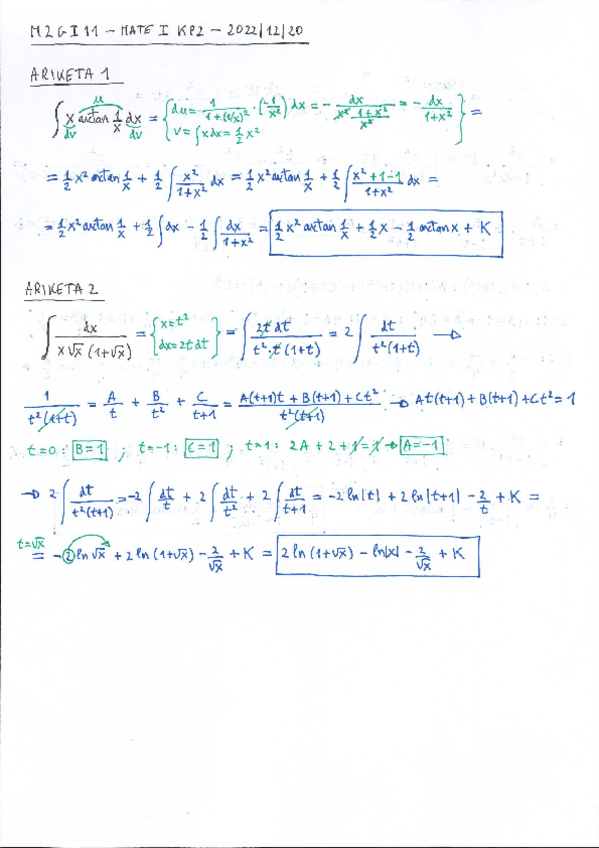 M2GI11 – MATE I KP2 – 2022/12/20
ARIKETA 1
∫ x arctan 1/x dx = { du = 1/(1+(1/x)²) · (-1/x²) dx = - dx/(x² (1+x²)/x²) = - dx/(1+x²) } =
u dv dv v = ∫ x dx = 1/2 x²
= 1/2 x² arctan 1/x + 1/2 ∫ x²/(1+x²) dx = 1/2 x² arctan 1/x + 1/2 ∫ (x²+1-1)/(1+x²) dx =
= 1/2 x² arctan 1/x + 1/2 ∫ dx - 1/2 ∫ dx/(1+x²) = 1/2 x² arctan 1/x + 1/2 x - 1/2 arctan x + K
ARIKETA 2
∫ dx/(x√x (1+√x)) = { x = t² dx = 2t dt } = ∫ 2t dt/(t²·t (1+t)) = 2 ∫ dt/(t²(1+t)) →
1/(t²(1+t)) = A/t + B/t² + C/(t+1) = (A(t+1)t + B(t+1) + Ct²)/(t²(t+1)) → At(t+1) + B(t+1) + Ct² = 1
t=0: B=1 ; t=-1: C=1 ; t=1: 2A + 2 + 1 = 1 → A=-1
→ 2 ∫ dt/(t²(t+1)) = -2 ∫ dt/t + 2 ∫ dt/t² + 2 ∫ dt/(t+1) = -2 ln|t| + 2 ln|t+1| - 2/t + K =
t=√x = -2 ln √x + 2 ln (1+√x) - 2/√x + K = 2 ln (1+√x) - ln|x| - 2/√x + K